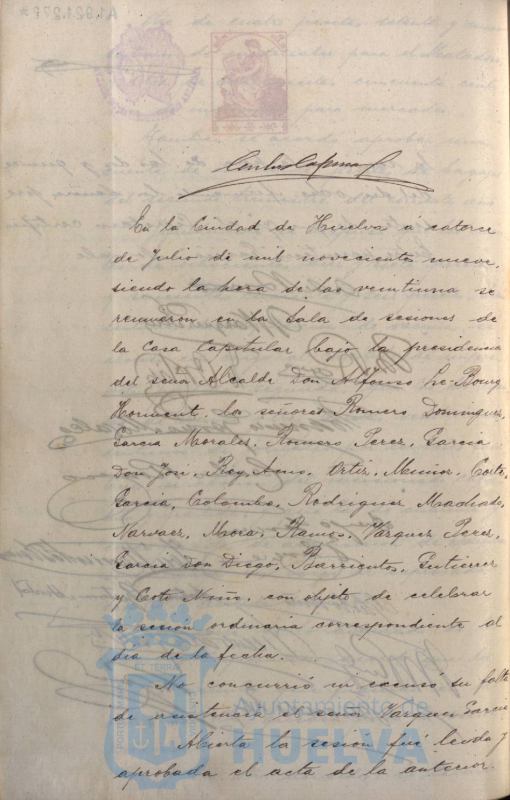 A1.921.276*
En la Ciudad de Huelva á catorce
de Julio de mil novecientos nueve,
siendo la hora de las veintiuna se
reunieron en la Sala de sesiones de
la Casa Capitular bajo la presidencia
del señor Alcalde Don Alfonso Le-Bourg
Horment, los señores Romero Dominguez,
Garcia Morales, Romero Perez, Garcia
Don José, Rey, Amo, Ortiz, Muñoz, Corto,
Garcia, Colombo, Rodriguez Machado,
Narvaez, Mora, Ramos, Vazquez Perez,
Garcia Don Diego, Barrientos, Gutierrez
y Coto Niño, con objeto de celebrar
la sesión ordinaria correspondiente al
día de la fecha.
No concurrió ni excusó su falta
de asistencia el señor Vazquez Garcia
Abierta la sesión fué leida y
aprobada el acta de la anterior.
Ayuntamiento de
HUELVA